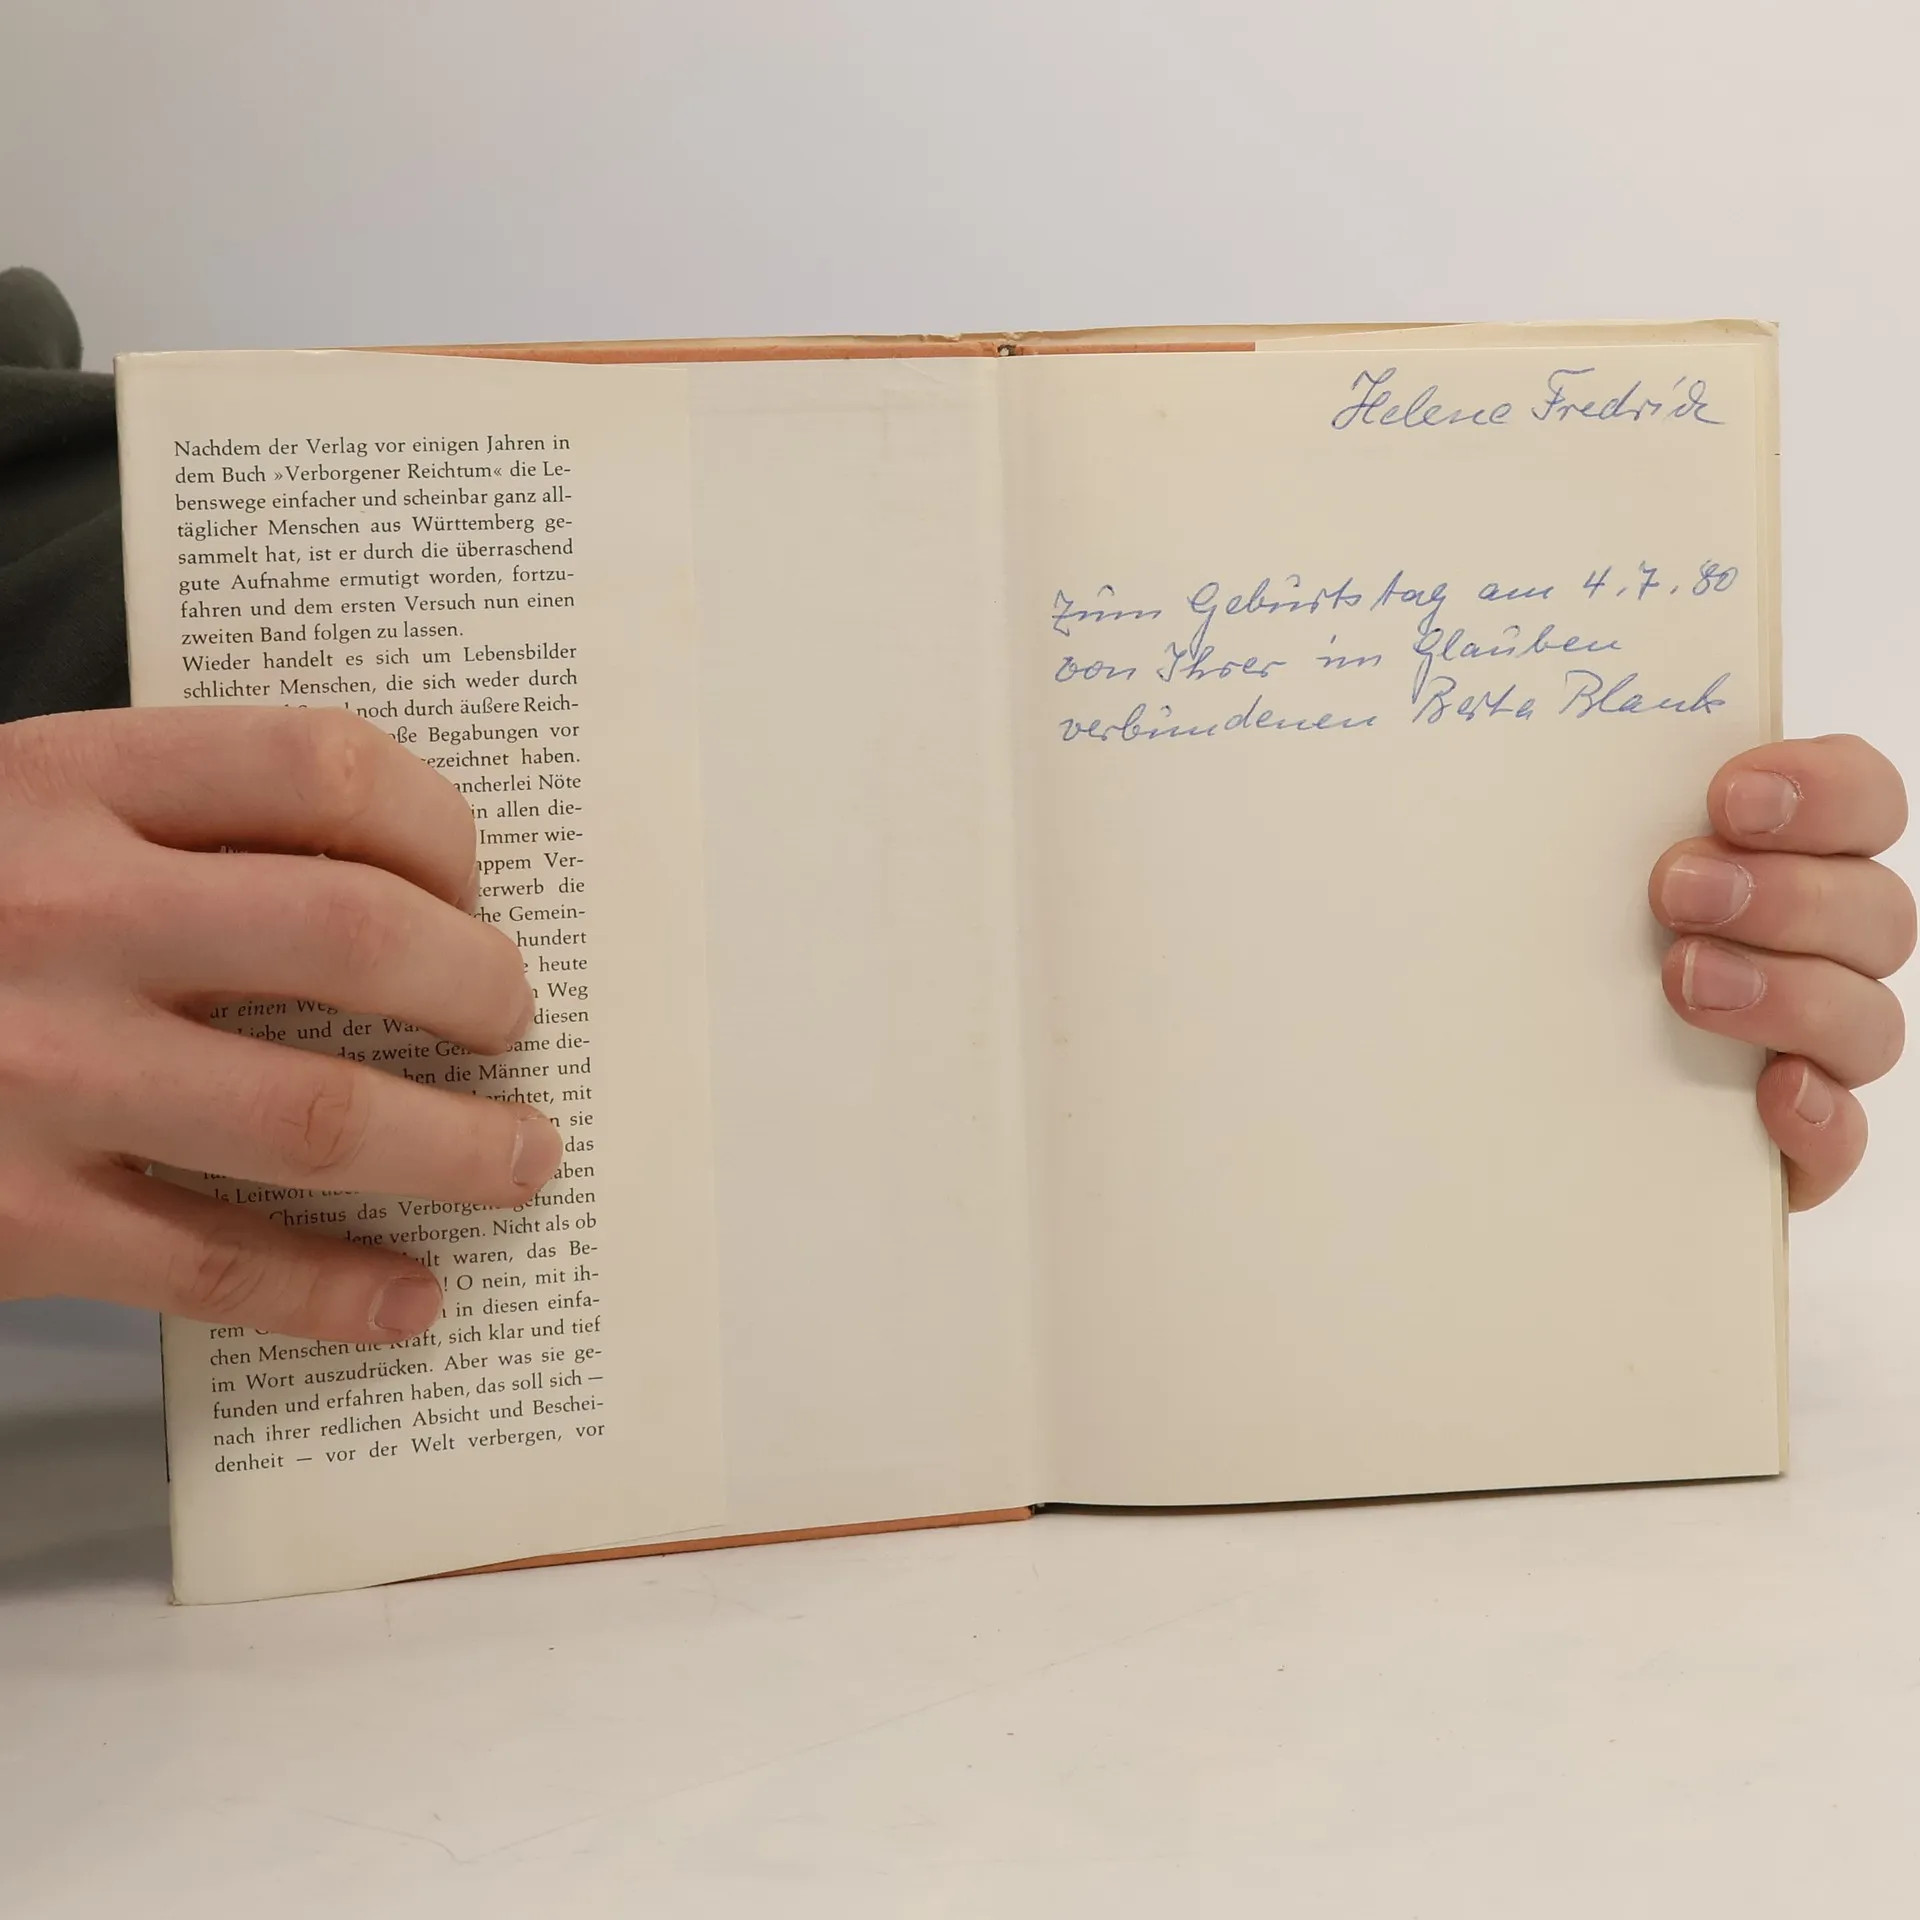 Nachdem der Verlag vor einigen Jahren in
dem Buch »Verborgener Reichtum« die Le-
benswege einfacher und scheinbar ganz all-
täglicher Menschen aus Württemberg ge-
sammelt hat, ist er durch die überraschend
gute Aufnahme ermutigt worden, fortzu-
fahren und dem ersten Versuch nun einen
zweiten Band folgen zu lassen.
Wieder handelt es sich um Lebensbilder
schlichter Menschen, die sich weder durch
noch durch äußere Reich-
Begabungen vor
haben.
Nöte
in allen die-
Immer wie-
Ver-
die
Gemein-
hundert
heute
Weg
diesen
einen Weg
und der
das zweite die-
die Männer und
mit
sie
das
Leitwort
Christus das gefunden
verborgen. Nicht als ob
waren, das Be-
! O nein, mit ih-
in diesen einfa-
rem
chen Menschen die Kraft, sich klar und tief
im Wort auszudrücken. Aber was sie ge-
funden und erfahren haben, das soll sich —
nach ihrer redlichen Absicht und Beschei-
denheit — vor der Welt verbergen, vor
Helene Fredrich
Zum Geburtstag am 4.7.80
von Ihrer im Glauben
verbundenen Berta Blank